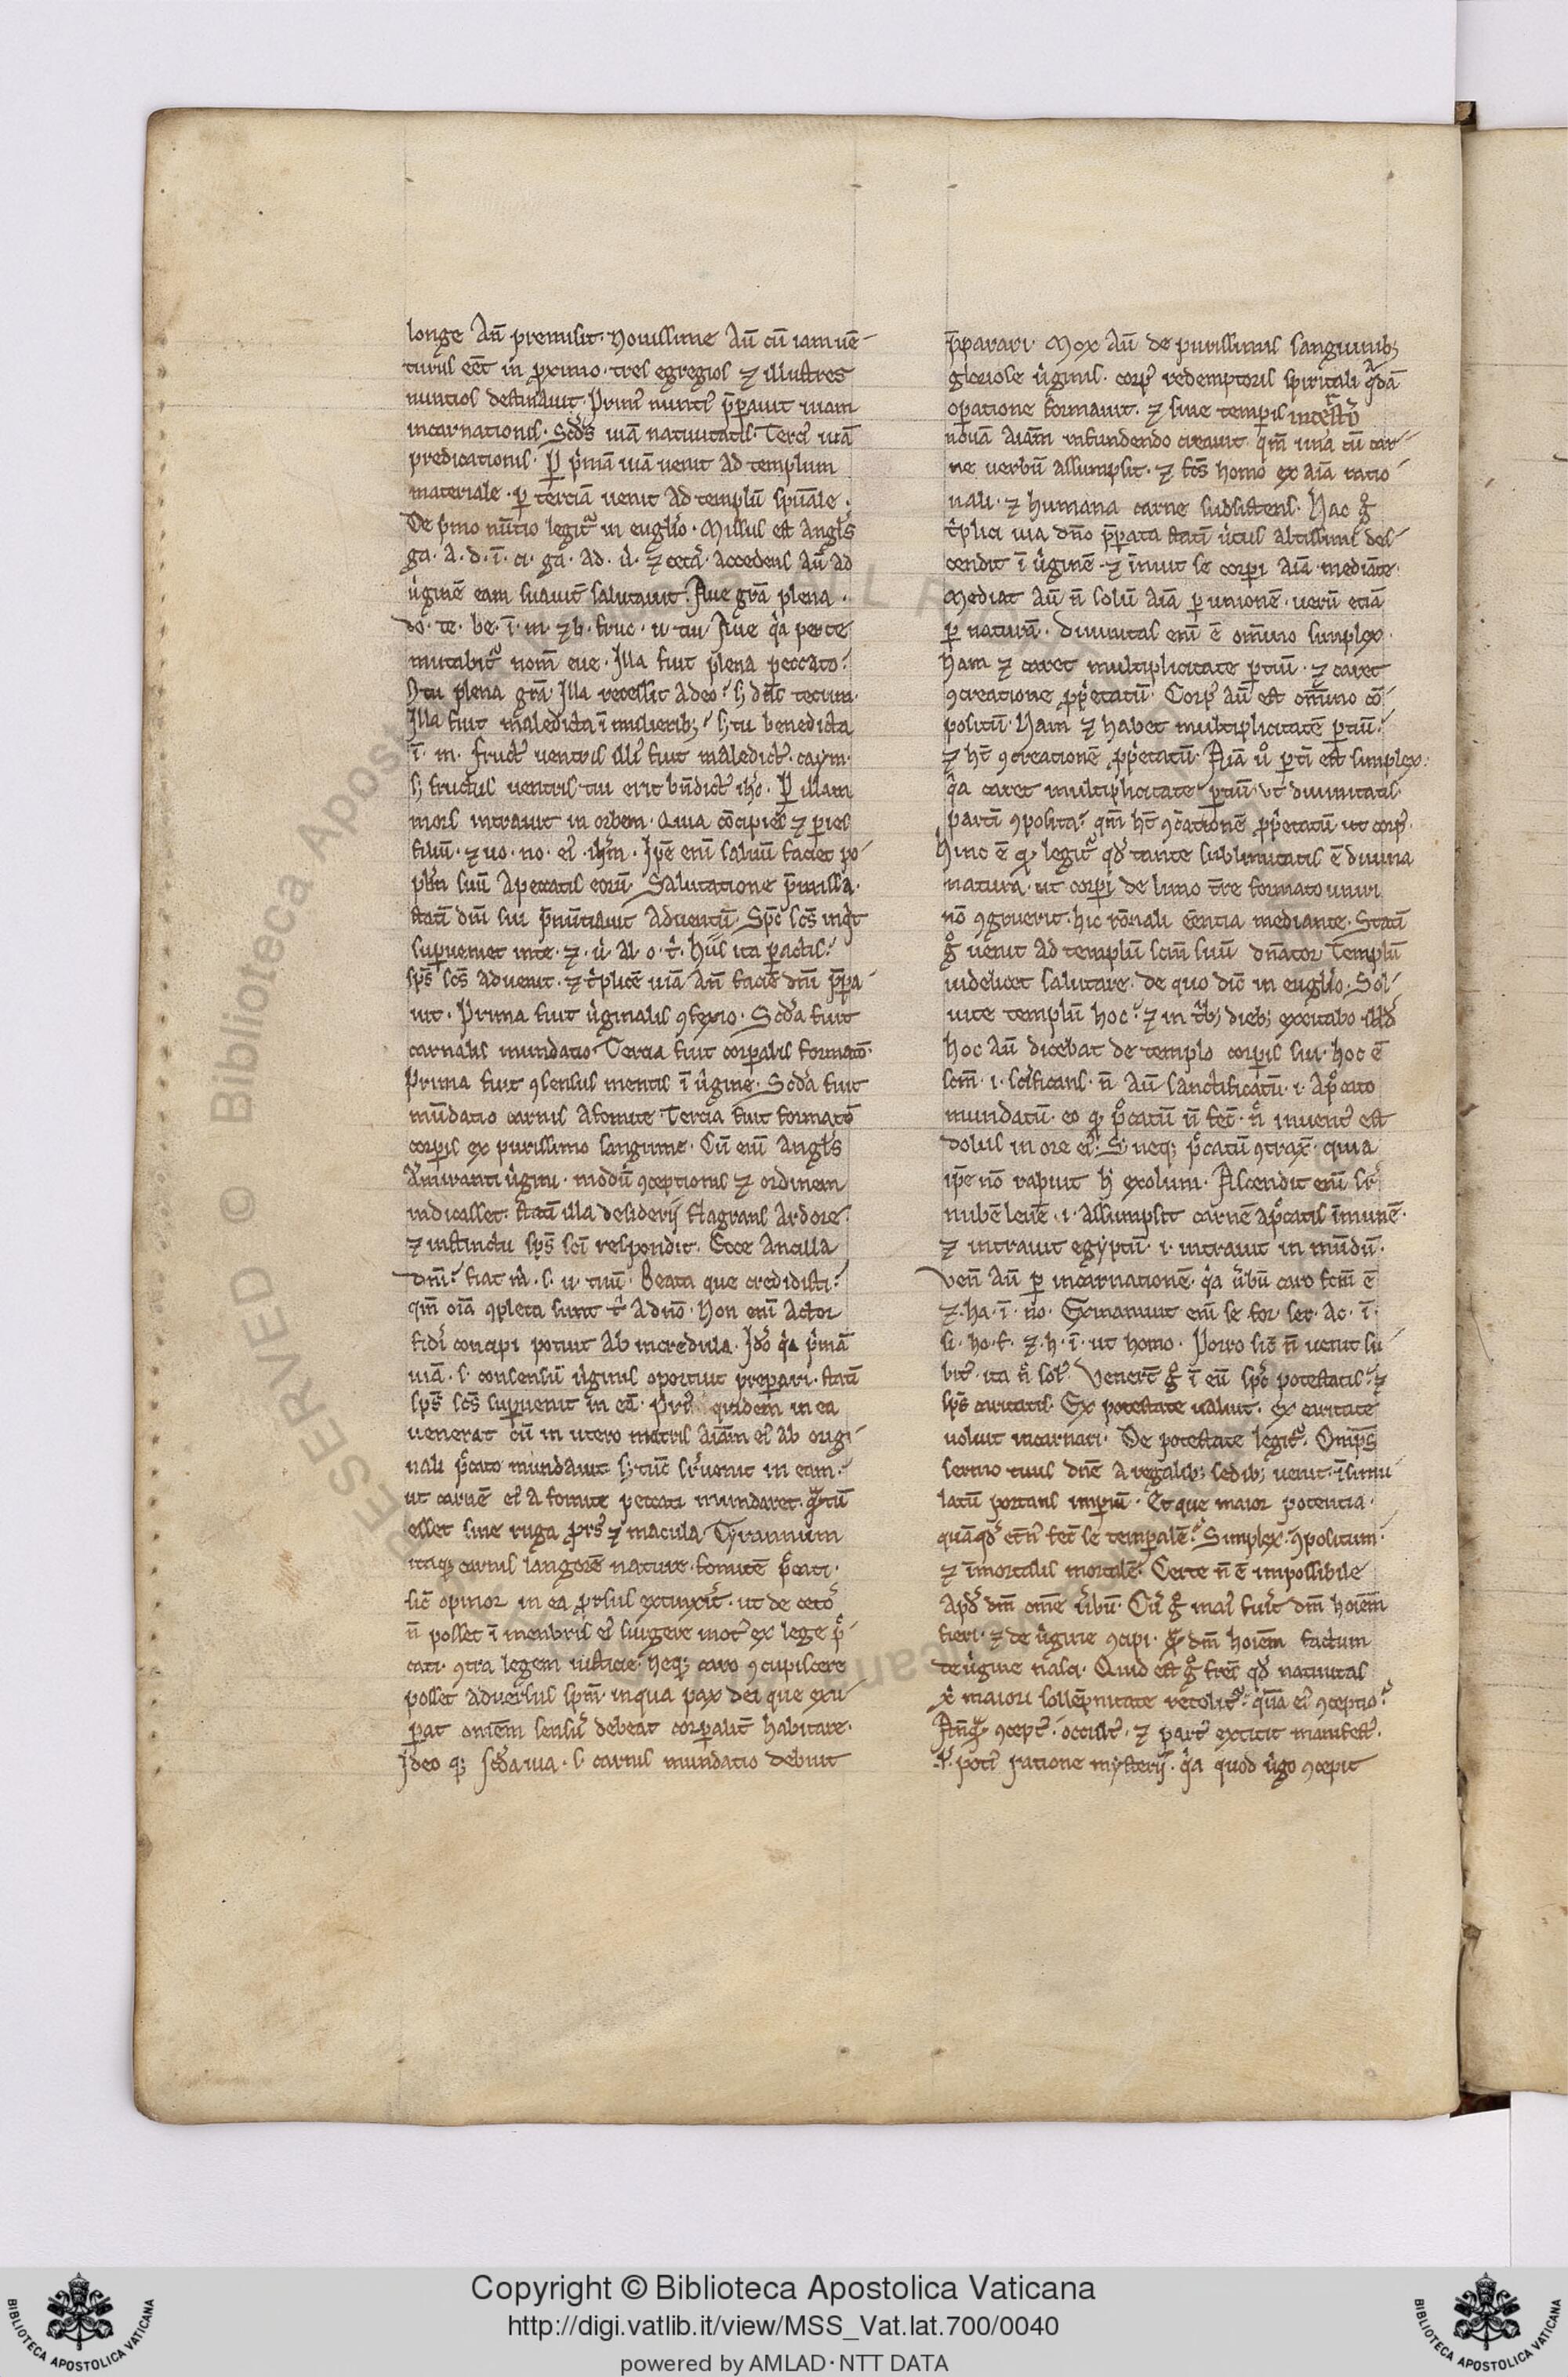 longe Añ premisit. Nouissime Aū cū iam uē
turus eēt in ꝓximo. tres egregios ⁊ illustres
nuntios destinauit. Prim᷒ nunti᷒ p̄ꝑauit uiam
incarnationis. Scd᷒s uiā natiuitatis. Terci᷒ uiā
predicationis. Ꝑ pͥmā uiā uenit ad templum
materiale. ꝑ terciā uenit ad templū spūale.
De pͥmo nūtio legit᷑ in euglͦio. Missus est Angls̄
ga. a. d. ī. ci. ga. ad. uͥ. ⁊ cetͣ. accedens Aū ad
uͥginē eam suauit᷑ salutauit. Aue gr̄a plena.
do. te. be. ī. m. ⁊ b. fruc. u. tui. Aue qͥa per te
mutabit᷑ nom̄ eue. Illa fuit plena peccato.
Ꝫ tu plena gr̄a. Illa recessit a deo. Ꝫ dn̄s tecum.
Illa fuit maledicta ī mulieribꝫ. Ꝫ tu benedicta
ī. m. fruct᷒ uentris illi᷒ fuit maledict᷒. caym.
Ꝫ fructus uentris tui erit bn̄dict᷒ ihc̄. Ꝑ illam
mors intrauit in orbem. Quia cōcipies ⁊ paries
filiū. ⁊ uo. no. ei᷒. ihm̄. Ipē enī saluū faciet po
plm̄ suū a peccatis eorū. Salutatione p̄missa.
statī dn̄i sui p̄nūtiauit aduentū. Spc̄ scs̄ inqͥt
suꝑueniet in te. ⁊. uͥ. al. o. tͥ. hiis ita ꝑactis.
sps̄ scs̄ aduenit. ⁊ tͥplicē uiā an̄ faciē dn̄i p̄ꝑa
uit. Prima fuit uͥginalis ꝯfexio. Scd̄a fuit
carnalis mundatio. Tercia fuit corꝑalis formatō.
Prima fuit ꝯsensus mentis ī uͥgine. Scd̄a fuit
mūdatio carnis a fomite. Tercia fuit formatō
corꝑis ex purissimo sanguine. Cū enī angls̄
Amiranti uͥgini. modū ꝯceptionis ⁊ ordinem
indicasset. statī illa desiderij flagrans ardore.
⁊ instinctu sps̄ sci̅ respondit. Ecce ancilla
dn̄i. fiat m̄. s. u. tuū. Beata que credidisti.
qm̄ oīa ꝯpleta sunt tͥ a dn̄o. Non enī actor
fidei concipi potuit ab incredula. Idͦo qͥa pͥmā
uiā. s. consensū uͥginis oportuit preꝑari. statī
sps̄ scs̄ suꝑuenit in eā. Pri᷒ quidem in ea
uenerat cū in utero matris aīam ei᷒ ab origi
nali pͨcato mundauit. Ꝫ tūc suꝑuenit in eam.
ut carnē ei᷒ a fomite peccati mundaret.
esset sine ruga ꝓrs᷒ ⁊ macula. Tyrannum
itaqꝫ carnis langorē nature. fomitē pͨcati.
sic̄ opinor in ea ꝓrsus extinxit. ut de cetͦo
n̄ posset ī menbris ei᷒ surgere mot᷒ ex lege p
cati. ꝯtra legem iusticie. Neqꝫ caro ꝯcupiscere
posset aduersus spm̄. in qua pax dei que exu
ꝑat omnem sensū debeat corꝑalit᷑ habitare.
Ideo qꝫ scd̄a uia. s. carnis mundatio debuit
p̄parari. Mox Aū de purissimis sanguinibꝫ
gloriose uͥginis. corp᷒ redemptoris spiritali qͣdā
oꝑatione formauit. ⁊ sine temꝑis
nouā Aīam infundendo creauit. qm̄ una cū car
ne uerbū assumpsit. ⁊ fcs̄ homo ex aīa ratio
nali. ⁊ humana carne subsistens. Hac gͦ
tͥplici uia dn̄o p̄ꝑata statī uͥtus altissimi des
cendit ī uͥginē. ⁊ īniuit se corꝑi aīa mediāte.
Mediat Aū n̄ solū aīa ꝑ unionē. uerū etiā
ꝑ naturā. Diuinitas enī ē om̄ino simplex.
Nam ⁊ caret multiplicitate ꝑtiū. ⁊ caret
ꝯcreatione ꝓpͥetatū. Corp᷒ aū est om̄ino cō
positū. Nam ⁊ habet multiplicitatē ꝑtiū.
⁊ ht̄ ꝯcreationē ꝓpͥetatū. Aīa uͦ ꝑtī est simplex.
qͥa caret multiplicitate ꝑtiū. ut diuinitas.
partī ꝯposita. qm̄ ht̄ ꝯcͣationē ꝓpͥetatū ut corp᷒.
Hinc ē qͦ legit᷑ qd̄ tante sublimitatis ē diuina
natura. ut corꝑi de limo tr̄e formato uniri
nō ꝯgruerit. hic rōnali eēntia mediante. Statī
gͦ uenit ad templū scm̄ suū dn̄ator. Templū
uidelicet salutare. de quo dic̄ in euglͦio. Sol
uite templū hoc. ⁊ in tͥbꝫ diebꝫ excitabo illd̄
Hoc aū dicebat de templo corꝑis sui. hoc ē
scm̄. i. scīficans. n̄ aū sanctificatū. i. a pͨcato
mundatū. eo qͦ pͨcatū n̄ fec̄. nͨ inuent᷒ est
dolus in ore ei᷒. S neqꝫ pͨcatū ꝯtrax̄. quia
ipē nō rapuit Ꝫ exoluit. Ascendit enī sr
nubē leuē. i. assumpsit carnē a pͨcatis īmunē.
⁊ intrauit egyptū. i. intrauit in mūdū.
Ven̄ aū ꝑ incarnationē. qͥa uͥbū caro fcm̄ ē
⁊. ha. ī. no. Exinaniuit enī se for. ser. ac. ī.
si. ho. f. ⁊. h. ī. ut homo. Porro sic̄ n̄ uenit su
bit᷒. ita nͨ sol᷒. Venert̄ gͦ ī eū sps̄ potestatis. ⁊
sps̄ caritatis. Ex potestate ualuit. ex caritate
uoluit incarnari. De potestate legit᷑. Omps̄
sermo tuus dn̄e a regalibꝫ sedibꝫ uenit. īsimu
latū portans imꝑiū. Et que maior potencia.
quā qd̄ et̄n᷒ fec̄ se temꝑalē. Simplex. ꝯpositum.
⁊ īmortalis mortalē. Certe n̄ ē impossibile
apd̄ dm̄ om̄e uͥbū. Cū gͦ mai᷒ fuit dm̄ hoīem
fieri. ⁊ de uͥgine ꝯcipi. qͣ dm̄ hoīem factum
de uͥgine nasci. Quid est gͦ frēs qd̄ natiuitas
xͥ maiori sollēpnitate recolit᷑. qͣ ei᷒ ꝯceptio.
ꝯcept᷒. occult᷒. ⁊ part᷒ extitit manifest᷒.
poti᷒ ratione mysterij. qͥa quod uͥgo ꝯcepit
Copyright © Biblioteca Apostolica Vaticana
http://digi.vatlib.it/view/MSS_Vat.lat.700/0040
powered by AMLAD · NTT DATA
BIBLIOTECA APOSTOLICA VATICANA
BIBLIOTECA APOSTOLICA VATICANA